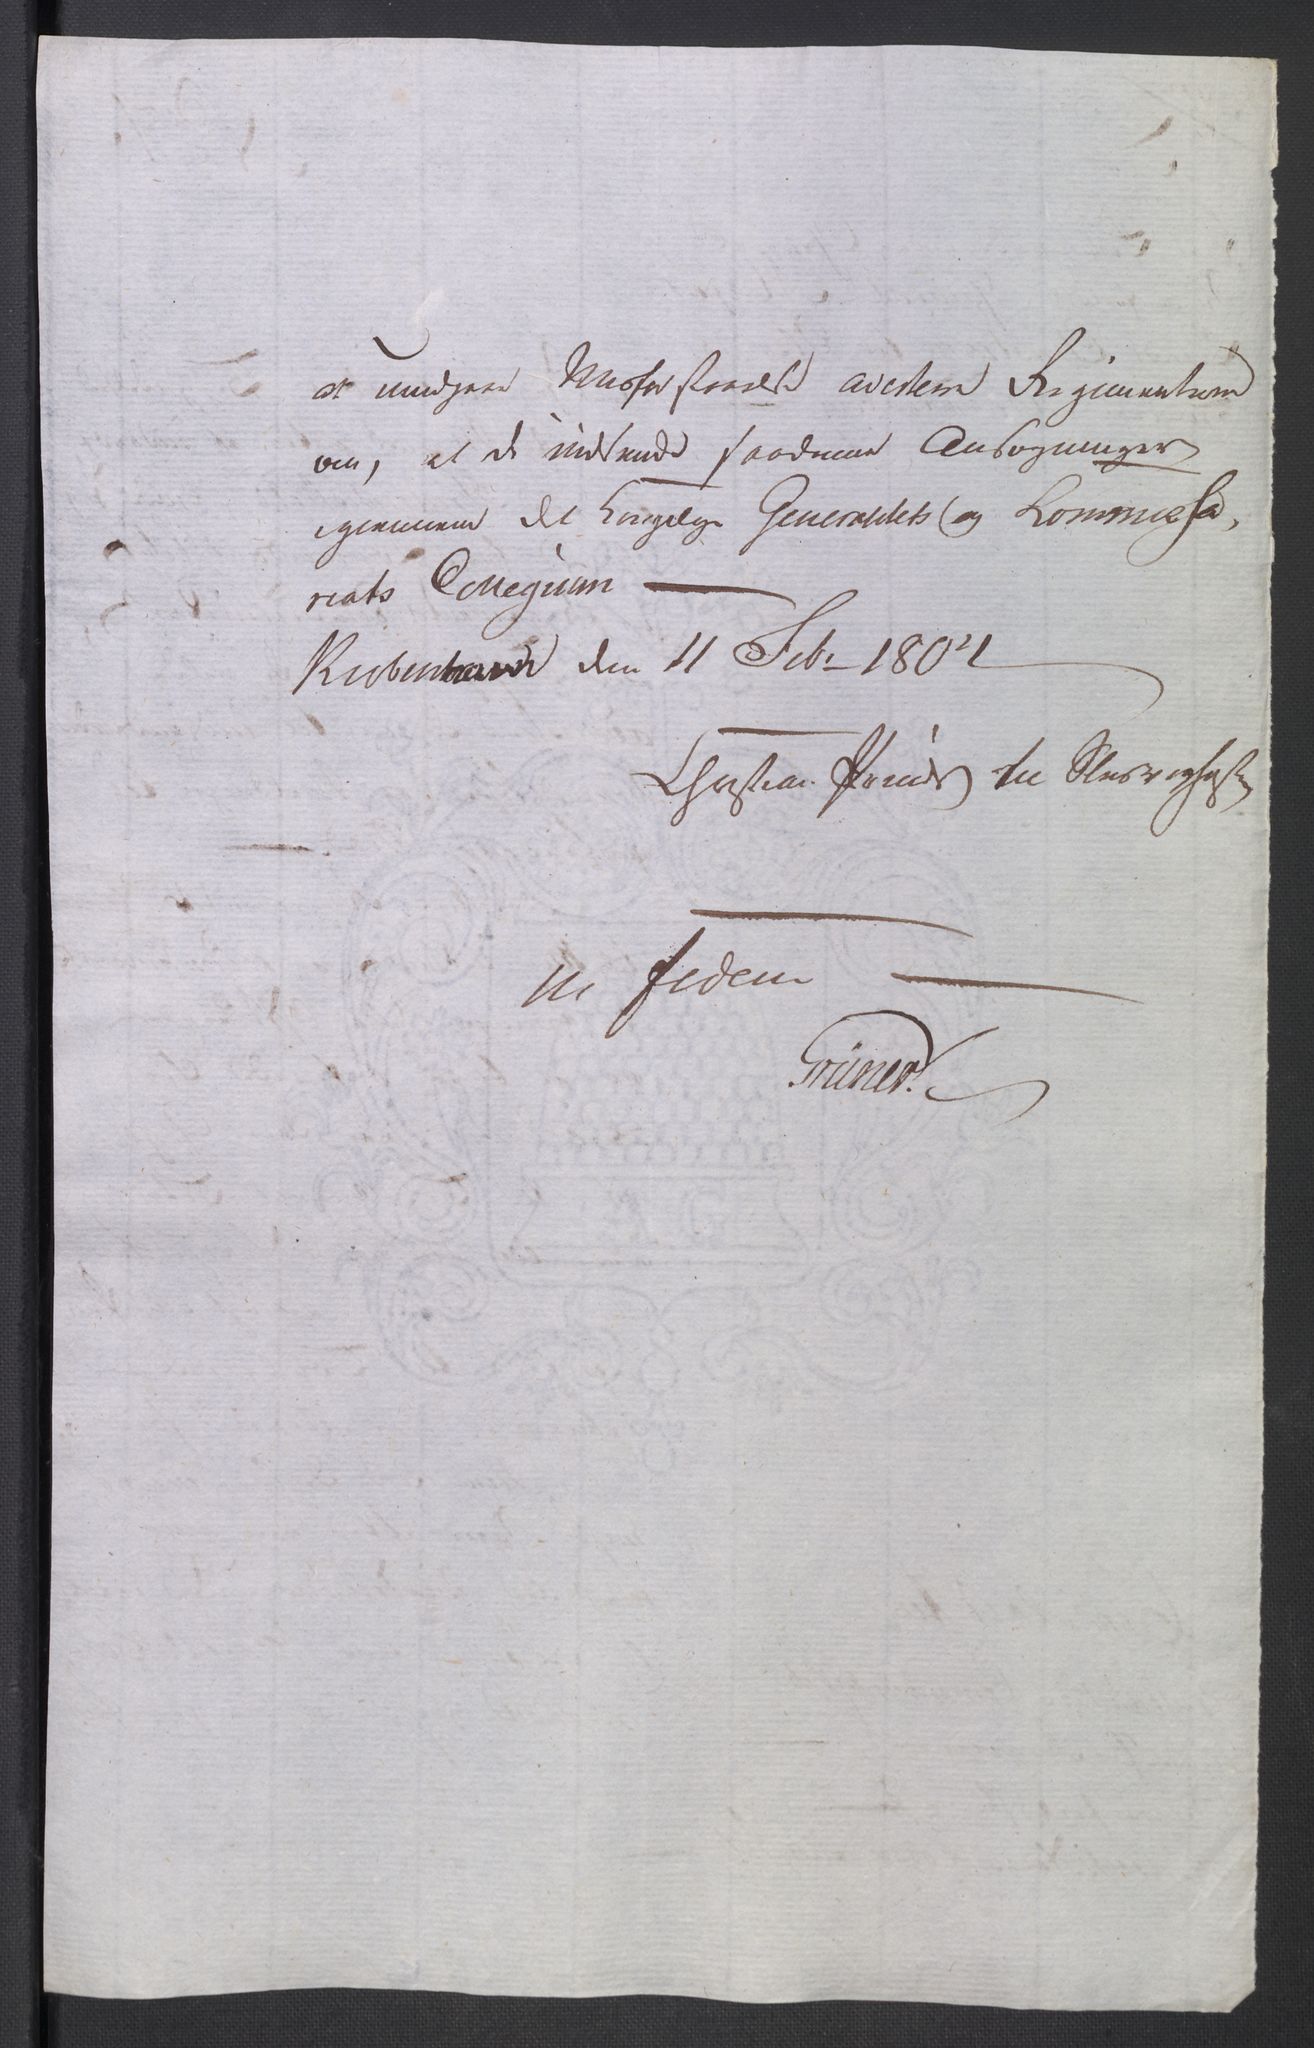 at undgaae Misforstaaelse avertere Regimenterne
om, at de indsende saadanne Ansøgninger
igiennem det Kongelige Generalitets og Kommissa,
riats Collegium
Kiøbenhavn den 11 Febr 1804
Christian Prinds til Slesvigholst
in fidem
Grüner.